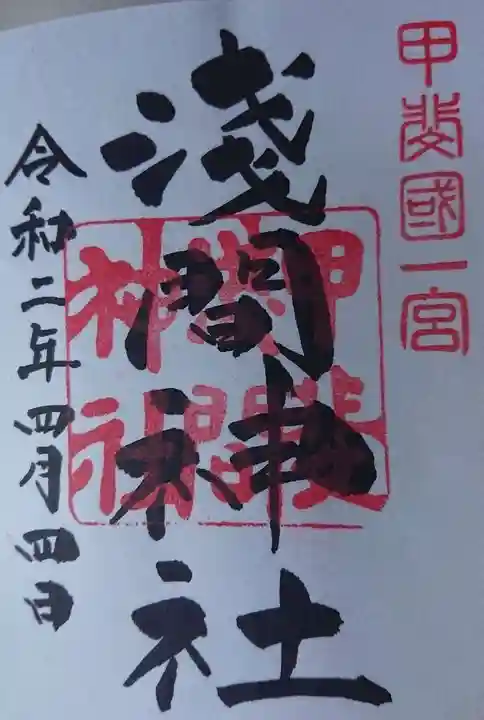 甲斐國一宮
淺間神社
甲斐淺間神社
令和二年四月四日